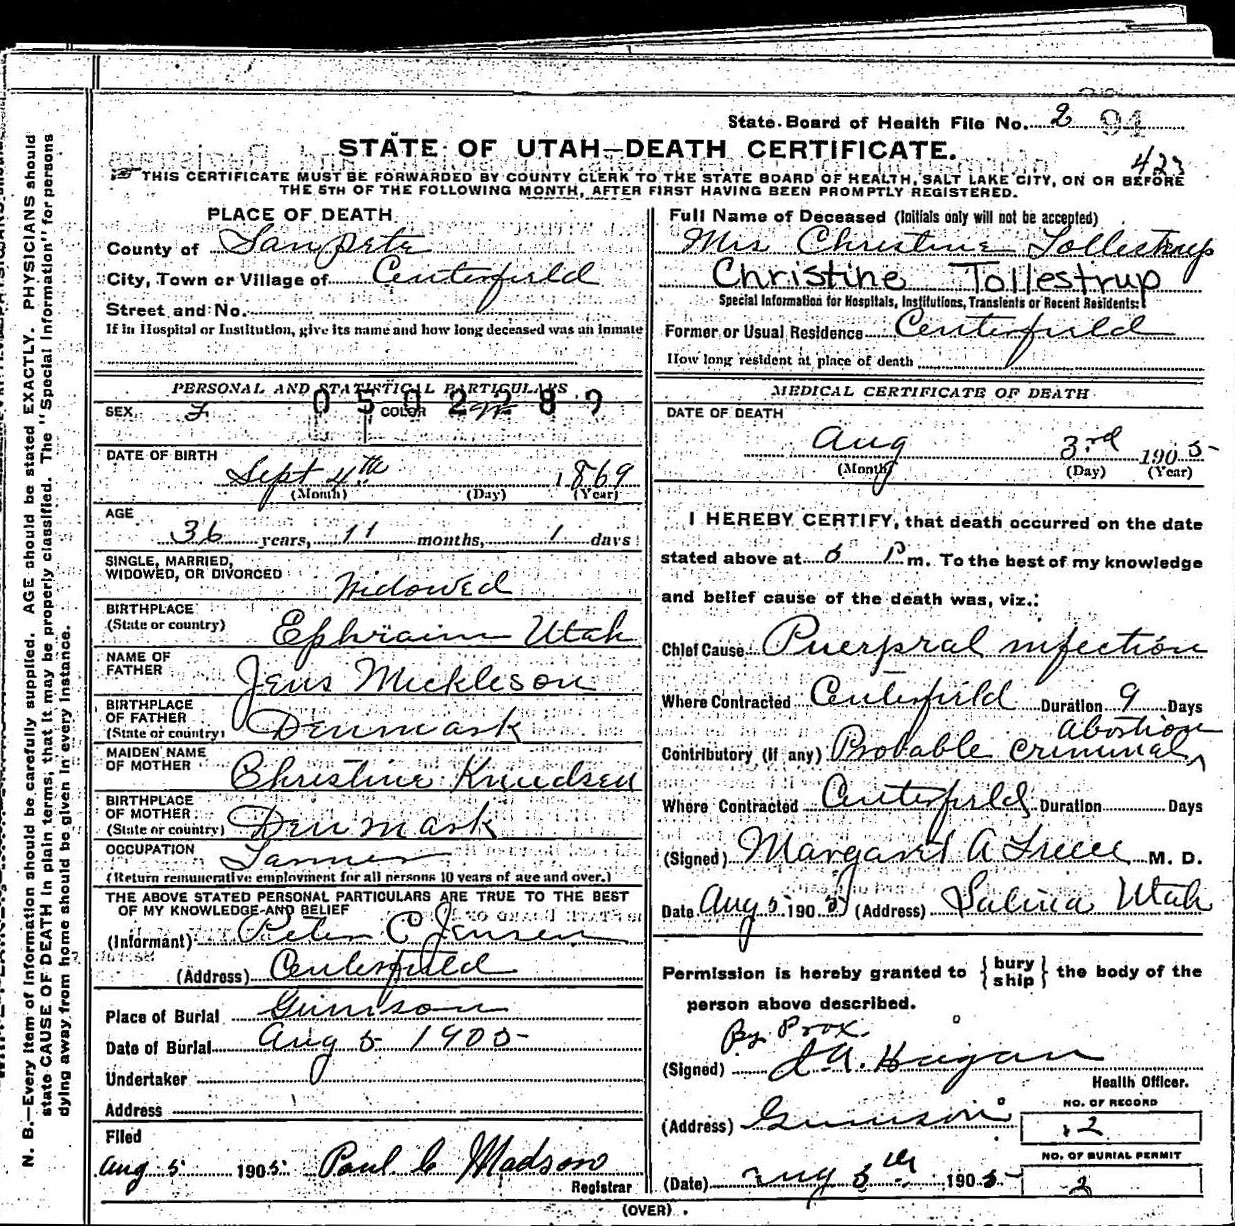 State Board of Health File No. 2 94
STATE OF UTAH—DEATH CERTIFICATE.
423
THIS CERTIFICATE MUST BE FORWARDED BY COUNTY CLERK TO THE STATE BOARD OF HEALTH, SALT LAKE CITY, ON OR BEFORE
THE 5TH OF THE FOLLOWING MONTH, AFTER FIRST HAVING BEEN PROMPTLY REGISTERED.
PLACE OF DEATH
County of Sanpete
City, Town or Village of Centerfield
Street and No.
If in Hospital or Institution, give its name and how long deceased was an inmate
PERSONAL AND STATISTICAL PARTICULARS
0502289
SEX F COLOR W
DATE OF BIRTH
Sept 4th 1869
(Month) (Day) (Year)
AGE
36 years, 11 months, 1 days
SINGLE, MARRIED,
WIDOWED, OR DIVORCED Widowed
BIRTHPLACE
(State or country) Ephraim Utah
NAME OF
FATHER Jens Mickleson
BIRTHPLACE
OF FATHER
(State or country) Denmark
MAIDEN NAME
OF MOTHER Christine Knudsen
BIRTHPLACE
OF MOTHER
(State or country) Denmark
OCCUPATION
(Return remunerative employment for all persons 10 years of age and over.)
THE ABOVE STATED PERSONAL PARTICULARS ARE TRUE TO THE BEST
OF MY KNOWLEDGE AND BELIEF
(Informant) Peter C Jensen
(Address) Centerfield
Place of Burial Gunnison
Date of Burial Aug 5 1905
Undertaker
Address
Filed
Aug 5 1905 Paul C Madson
Registrar
Full Name of Deceased (Initials only will not be accepted)
Mrs Christine Tollestrup
Christine Tollestrup
Special Information for Hospitals, Institutions, Transients or Recent Residents:
Former or Usual Residence Centerfield
How long resident at place of death
MEDICAL CERTIFICATE OF DEATH
DATE OF DEATH
Aug 3rd 1905
(Month) (Day) (Year)
I HEREBY CERTIFY, that death occurred on the date
stated above at 6 P m. To the best of my knowledge
and belief cause of the death was, viz.:
Chief Cause Puerpral infection
Where Contracted Centerfield Duration 9 Days
Contributory (if any) Probable criminal abortion
Where Contracted Centerfield Duration Days
(Signed) A M. D.
Date Aug 5 1905 (Address) Salina Utah
Permission is hereby granted to {bury
ship} the body of the
person above described.
By Prox.
(Signed) J A. Hagan
Health Officer.
(Address) Gunnison
NO. OF RECORD
2
(Date) Aug 5th 1905
NO. OF BURIAL PERMIT
2
(OVER)
N. B.—Every item of information should be carefully supplied. AGE should be stated EXACTLY. PHYSICIANS should
state CAUSE OF DEATH in plain terms, that it may be properly classified. The "Special Information" for persons
dying away from home should be given in every instance.